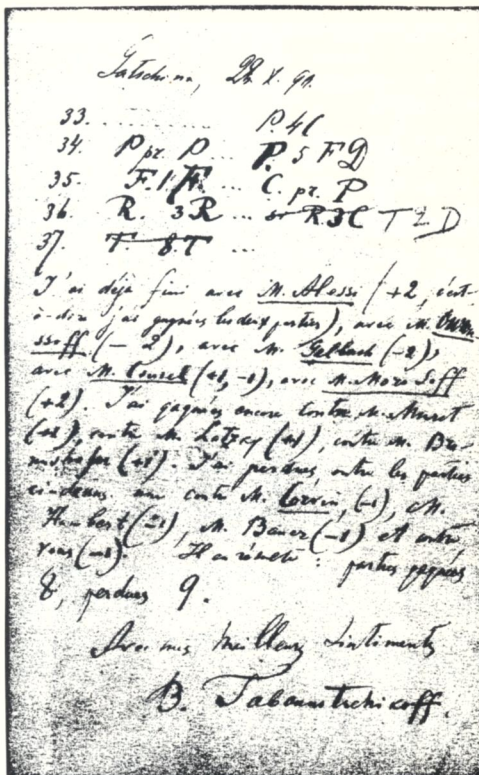 Gatschina, 22 X. 91.
33. .......... P. 4C
34. P pr. P ... P. 5 F D
35. F. 1 F. ... C. pr. P
36. R. 3R ... R3C T 2 D
37. T. 8T ...
J'ai déjà fini avec M. Alessi (+2, c'est-
à-dire j'ai gagnés les deux parties), avec M.
ssoff (– 2), avec M. Gelbach (–2),
avec M. (+1, –1), avec M. Morosoff
(+2). J'ai gagnés encore contre M. Muret
contre M. contre M.
(+1). J'ai perdues, outre les parties
ci-dessus une contre M. Corvin, (–1), M.
Humbert (–1), M. Bauer (–1) et contre
vous (–1) : parties gagnées
8, perdues 9.
Avec mes meilleurs sentiments
B.